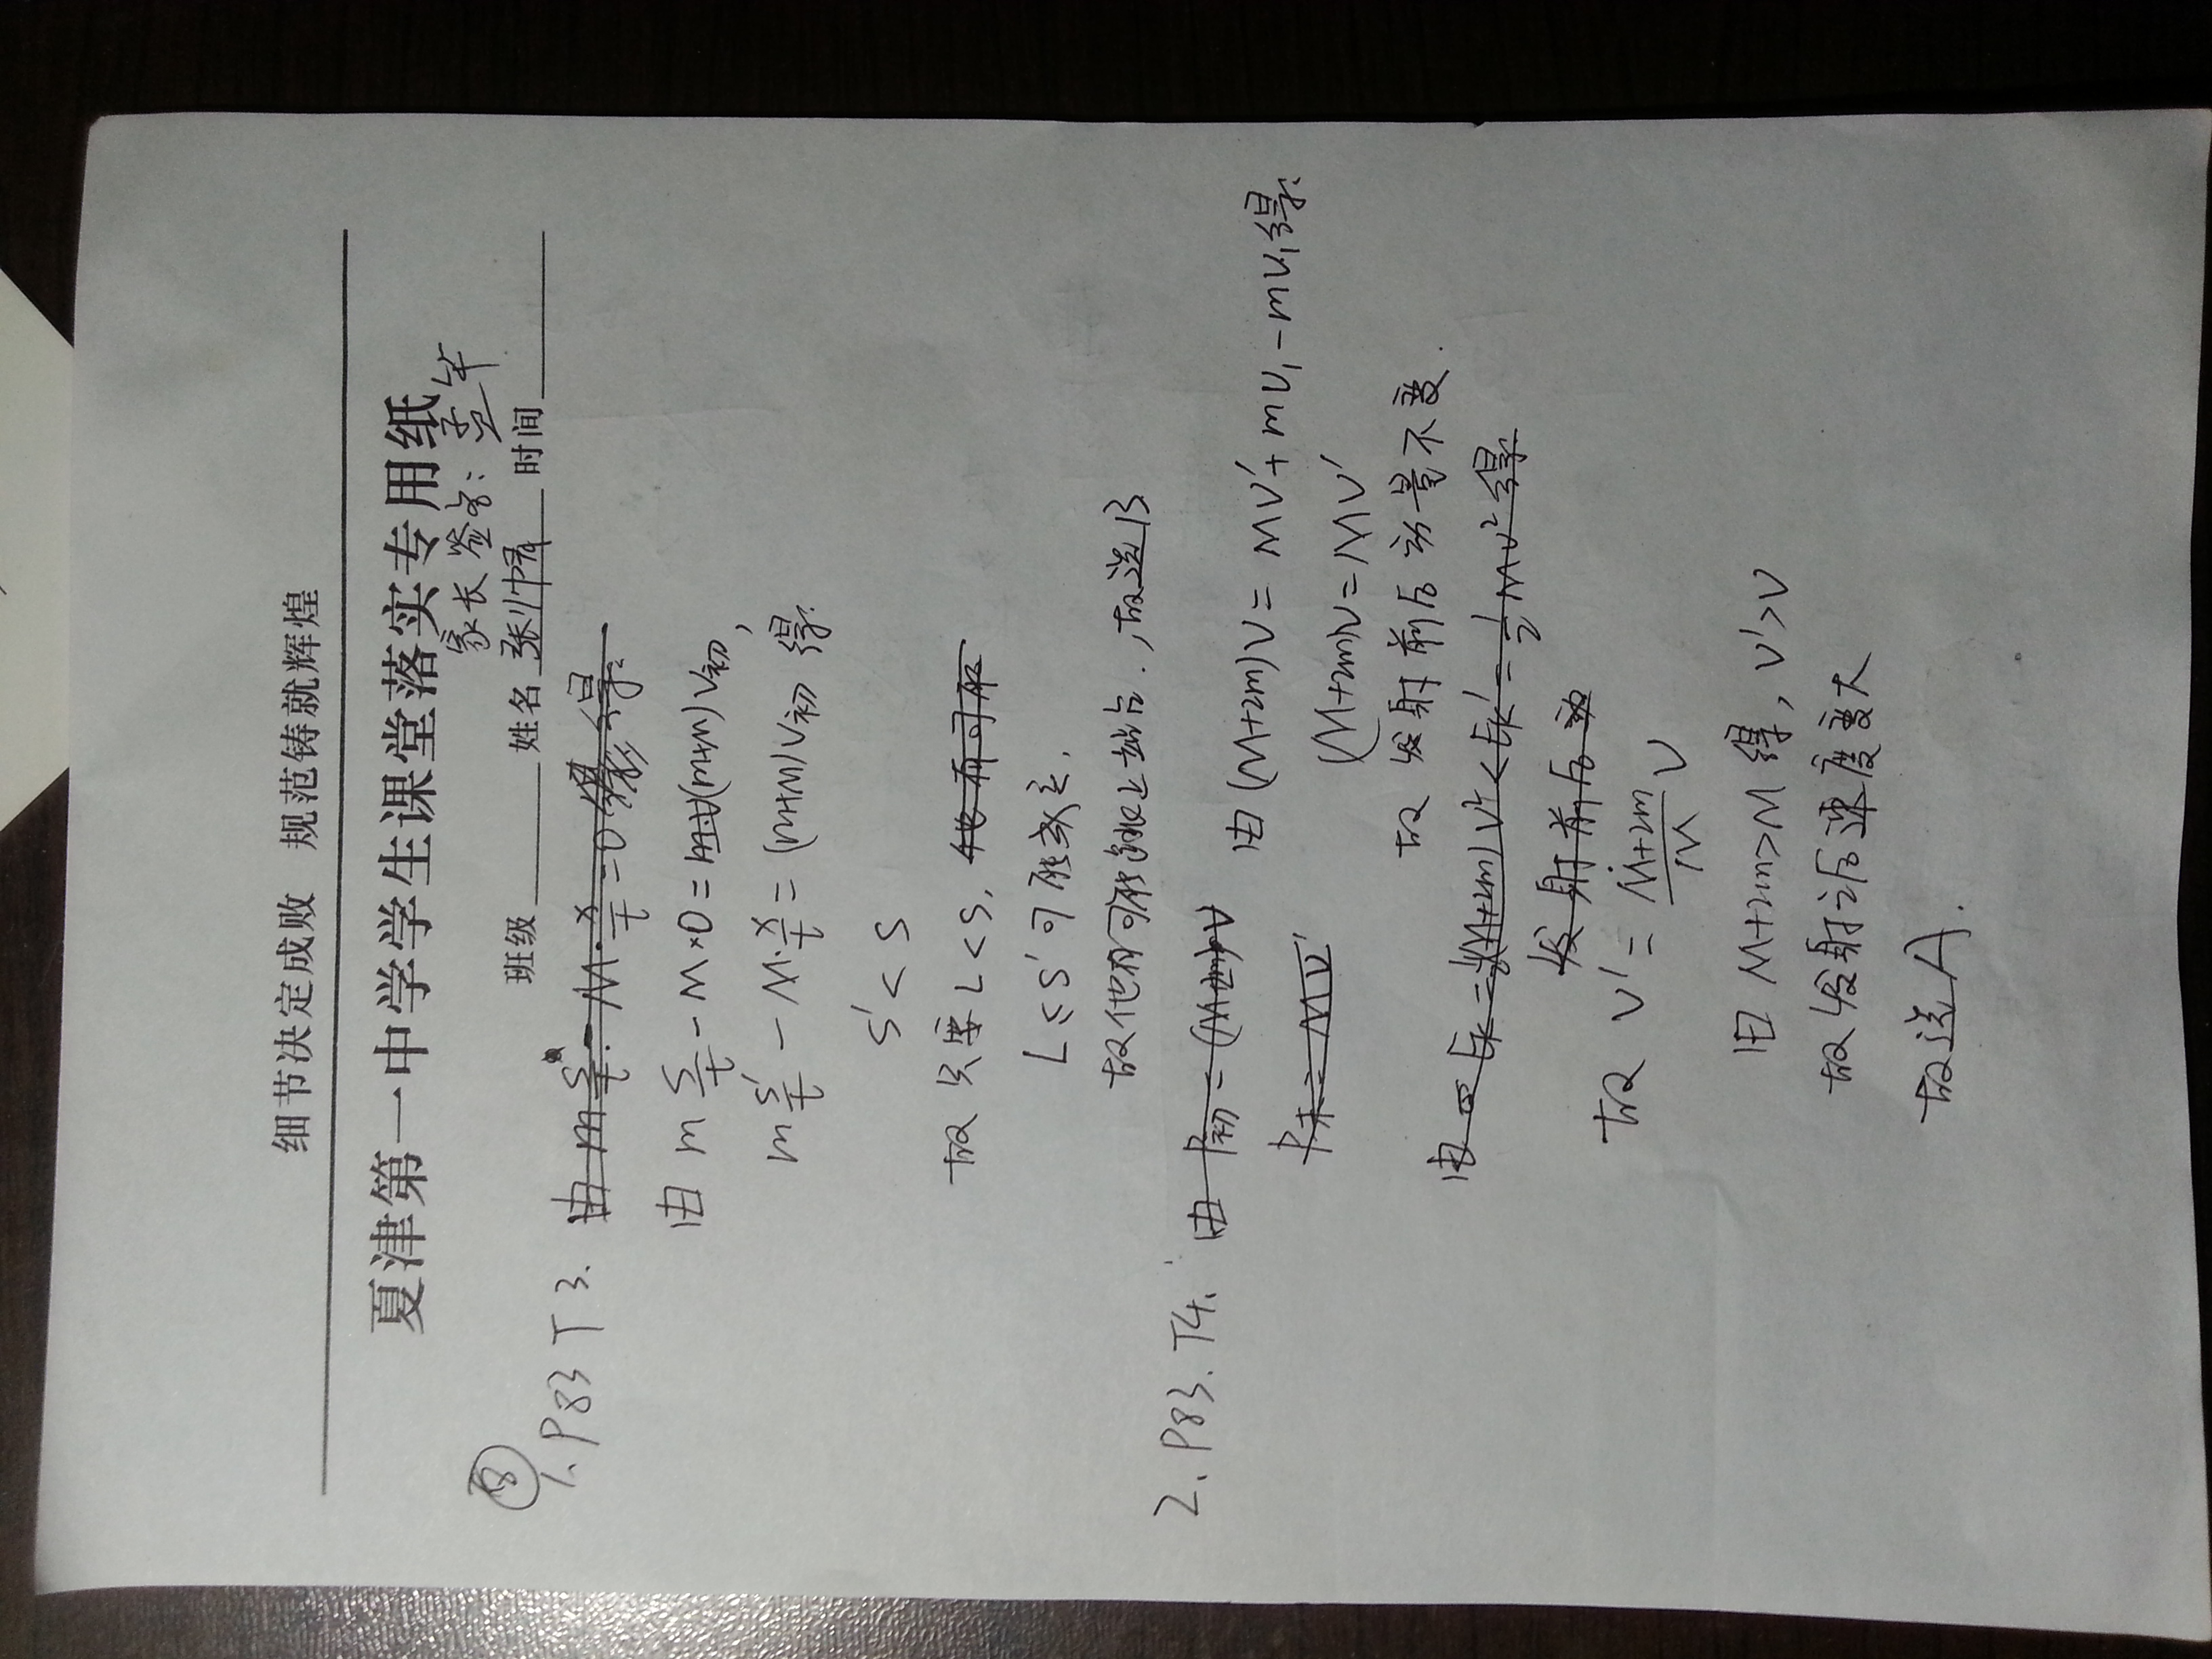 细节决定成败 规范铸就辉煌
夏津第一中学学生课堂落实专用纸
家长签名:孟华
⑧
班级 姓名 张帅 时间
1. P83 T3. 由 m s/t - M·x/t = 0 得:
由 m s/t - M×0 = (m+M)v初,
m s'/t - M·x/t = (m+M)v初 得:
s' < s
故 只要 L<s, 他有可能
L≤s' 可能成立.
故他有可能跳上站台., 故选B
2. P83. T4. 由 P初 = (M+2m)v
P末 = Mv'
由 (M+2m)v = Mv' + mv₁ - mv₁ 得:
(M+2m)v = Mv'
故 发射前后动量不变.
由 Ek = ½(M+2m)v² < Ek' = ½Mv² 得:
发射前后动
故 v' = (M+2m)/M v
由 M+2m>M 得, v'>v
故发射之后速度变大
故选A.